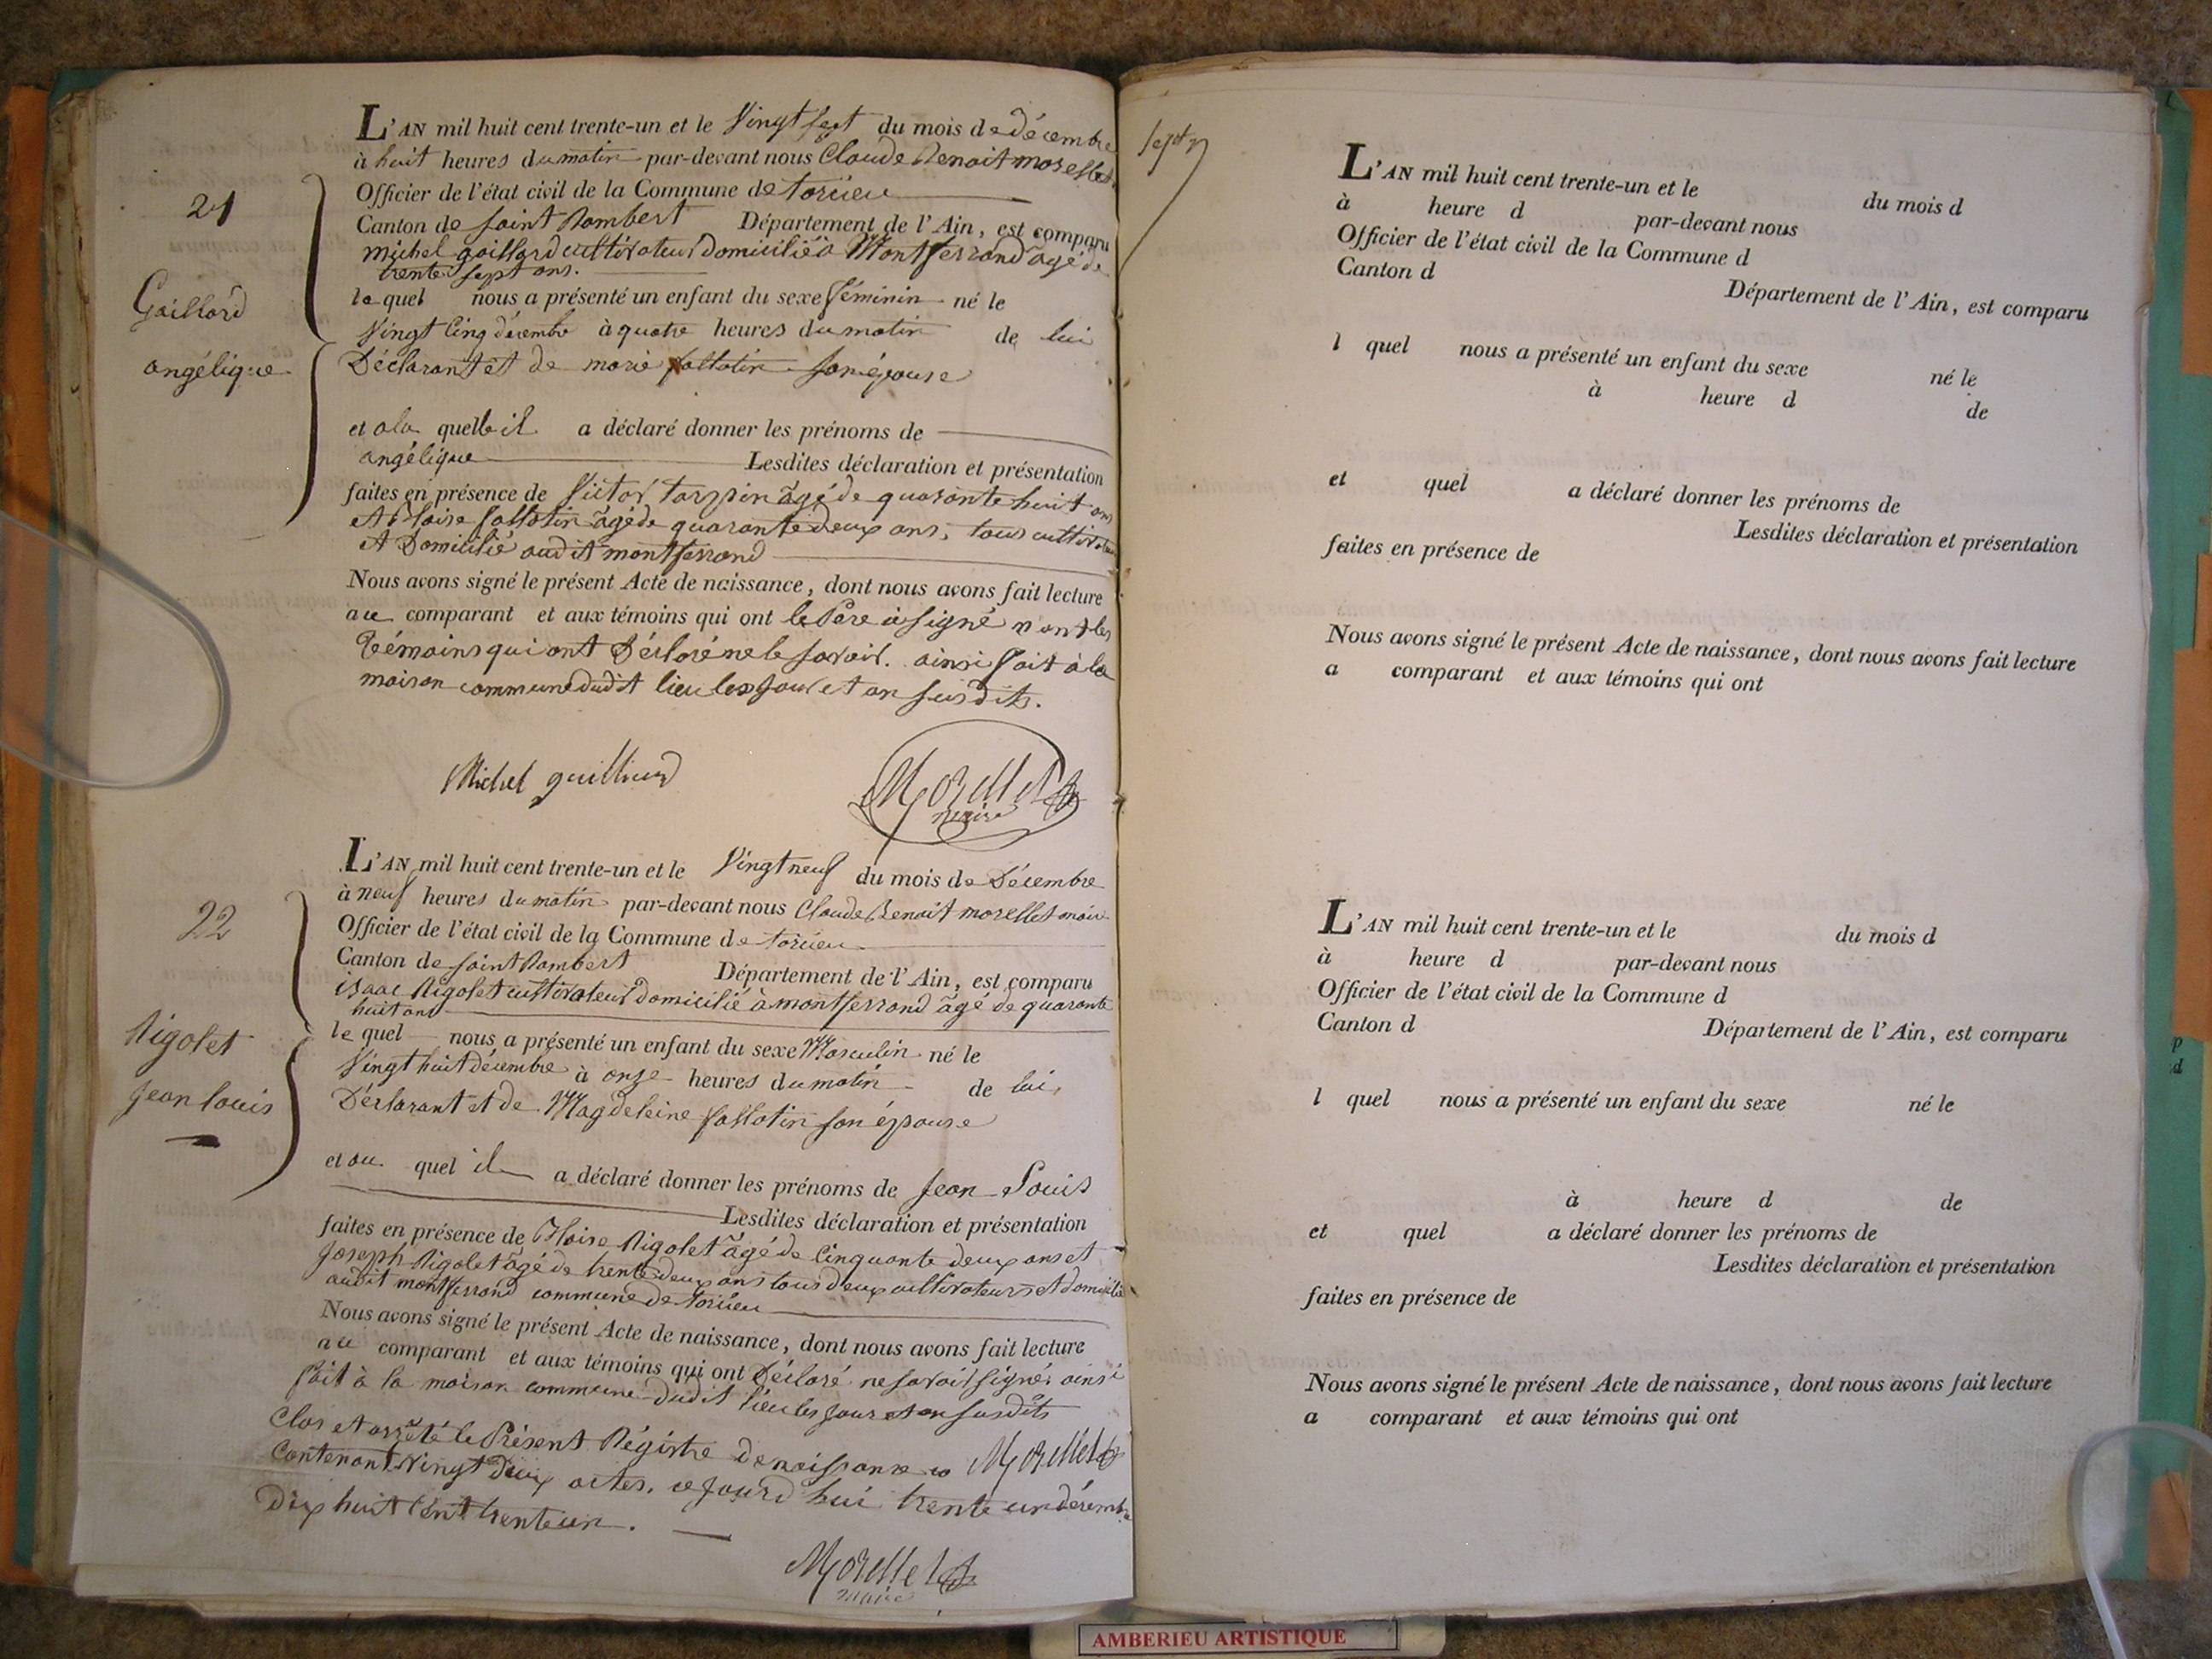 21
Gaillard
angélique
L'AN mil huit cent trente-un et le Vingt sept du mois de décembre
à huit heures du matin par-devant nous Claude Benoit morellet
Officier de l'état civil de la Commune de torcieu
Canton de saint Rambert Département de l'Ain, est comparu
michel gaillard cultivateur domicilié à Montferrand âgé de
trente sept ans.
le quel nous a présenté un enfant du sexe féminin né le
Vingt cinq décembre à quatre heures du matin de lui
Déclarant et de marie sallatin son épouse
et a la quelle il a déclaré donner les prénoms de
angélique Lesdites déclaration et présentation
faites en présence de Victor tarpin âgé de quarante huit ans
et Blaise sallatin âgé de quarante deux ans, tous cultivateurs
et Domicilié audit montferrand
Nous avons signé le présent Acte de naissance, dont nous avons fait lecture
au comparant et aux témoins qui ont le Père a signé non les
Témoins qui ont Déclaré ne le savoir. ainsi fait à la
maison commune dudit lieu les jour et an susdits.
Michel guilliard
Morellet
maire
22
Rigolet
jean louis
L'AN mil huit cent trente-un et le Vingt neuf du mois de Décembre
à neuf heures du matin par-devant nous Claude Benoit morellet maire
Officier de l'état civil de la Commune de torcieu
Canton de saint Rambert Département de l'Ain, est comparu
isaac Rigolet cultivateur domicilié à montferrand âgé de quarante
huit ans
le quel nous a présenté un enfant du sexe Masculin né le
Vingt huit décembre à onze heures du matin de lui
Déclarant et de Magdeleine sallatin son épouse
et au quel il a déclaré donner les prénoms de jean Louis
Lesdites déclaration et présentation
faites en présence de Blaise Rigolet âgé de cinquante deux ans et
joseph Rigolet âgé de trente deux ans tous deux cultivateurs et domicilié
audit montferrand commune de torcieu
Nous avons signé le présent Acte de naissance, dont nous avons fait lecture
au comparant et aux témoins qui ont Déclaré ne savoir signé. ainsi
fait à la maison commune dudit lieu les jour et an susdits
Clos et arrêté le Présent Régistre de naissance Morellet
Contenant Vingt deux actes. ce jourd'hui trente un décembre
Dix huit cent trente un.
Morellet
maire
sept
L'AN mil huit cent trente-un et le du mois d
à heure d par-devant nous
Officier de l'état civil de la Commune d
Canton d Département de l'Ain, est comparu
l quel nous a présenté un enfant du sexe né le
à heure d de
et quel a déclaré donner les prénoms de
Lesdites déclaration et présentation
faites en présence de
Nous avons signé le présent Acte de naissance, dont nous avons fait lecture
a comparant et aux témoins qui ont
L'AN mil huit cent trente-un et le du mois d
à heure d par-devant nous
Officier de l'état civil de la Commune d
Canton d Département de l'Ain, est comparu
l quel nous a présenté un enfant du sexe né le
à heure d de
et quel a déclaré donner les prénoms de
Lesdites déclaration et présentation
faites en présence de
Nous avons signé le présent Acte de naissance, dont nous avons fait lecture
a comparant et aux témoins qui ont
AMBERIEU ARTISTIQUE